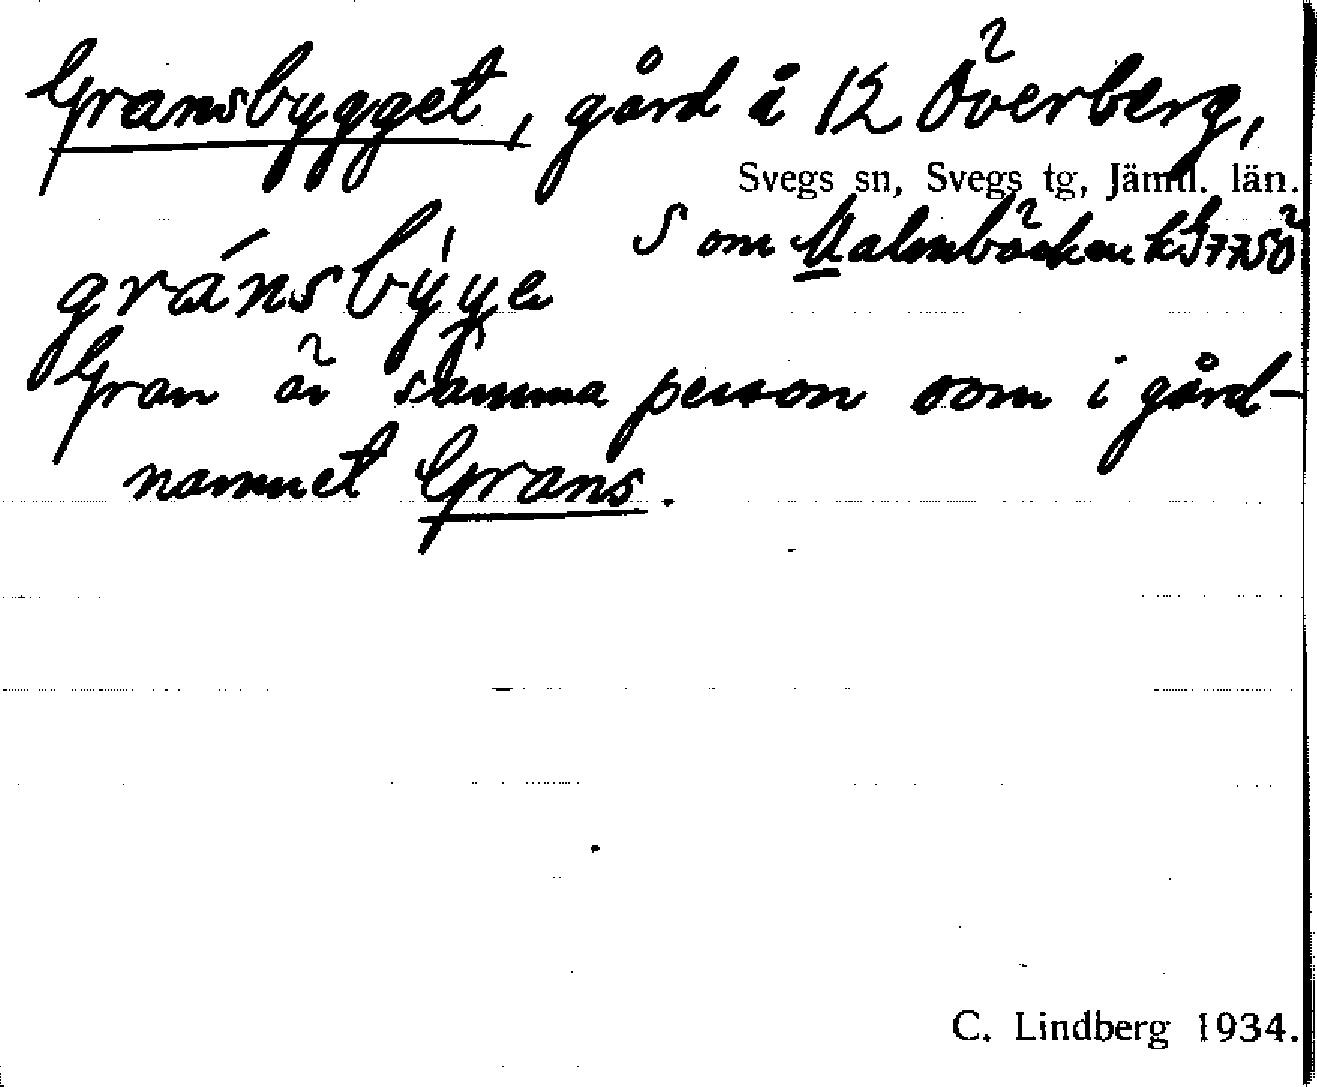 Gransbygget, gård å 12 Överberg,
Svegs sn, Svegs tg, Jämtl. län.
S om Malmbäcken
gránsbýge
Gran är samma person som i gård-
namnet Grans.
C. Lindberg 1934.